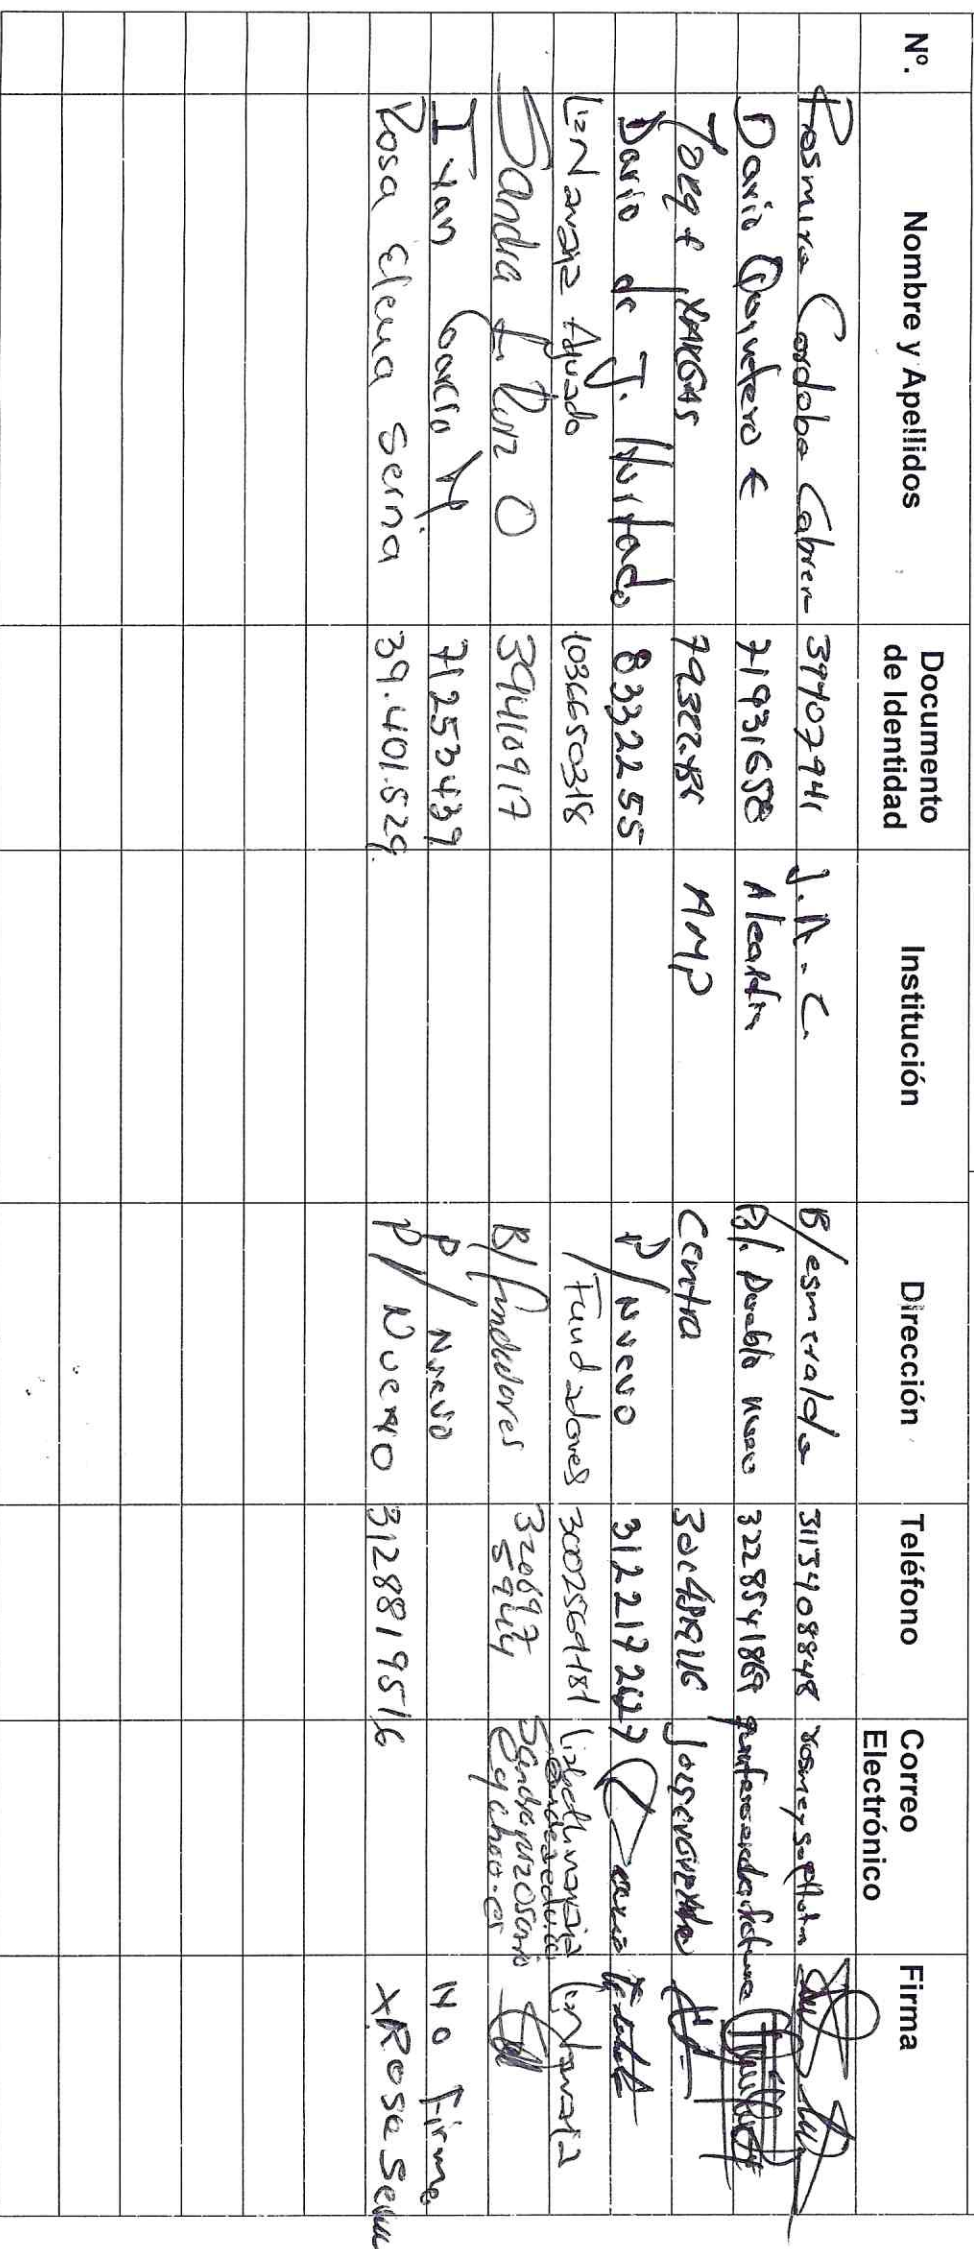 Nº. Nombre y Apellidos Documento de Identidad Institución Dirección Teléfono Correo Electrónico Firma
Rosmira Cordoba Cabrera 39407941 J.A.C. B/esmeralda 3113408848
Dario Quintero E 71931658 Alcaldia B/. Pueblo nuevo 3228541869
Jorge VARGAS AMP Centro
Dario de J. Hurtado 8332255 P/Nuevo 3122172427
Liz Naranza Aguado 1036650318 /Fundadores 3002569181
Sandra L. Ruiz O 39410917 B/fundadores 320697 5944
Ivan Garcia M 71253439 P/Nuevo No Firma
Rosa Elena Serna 39.401.529 P/Nuevo 3128819516 xRosa Serna